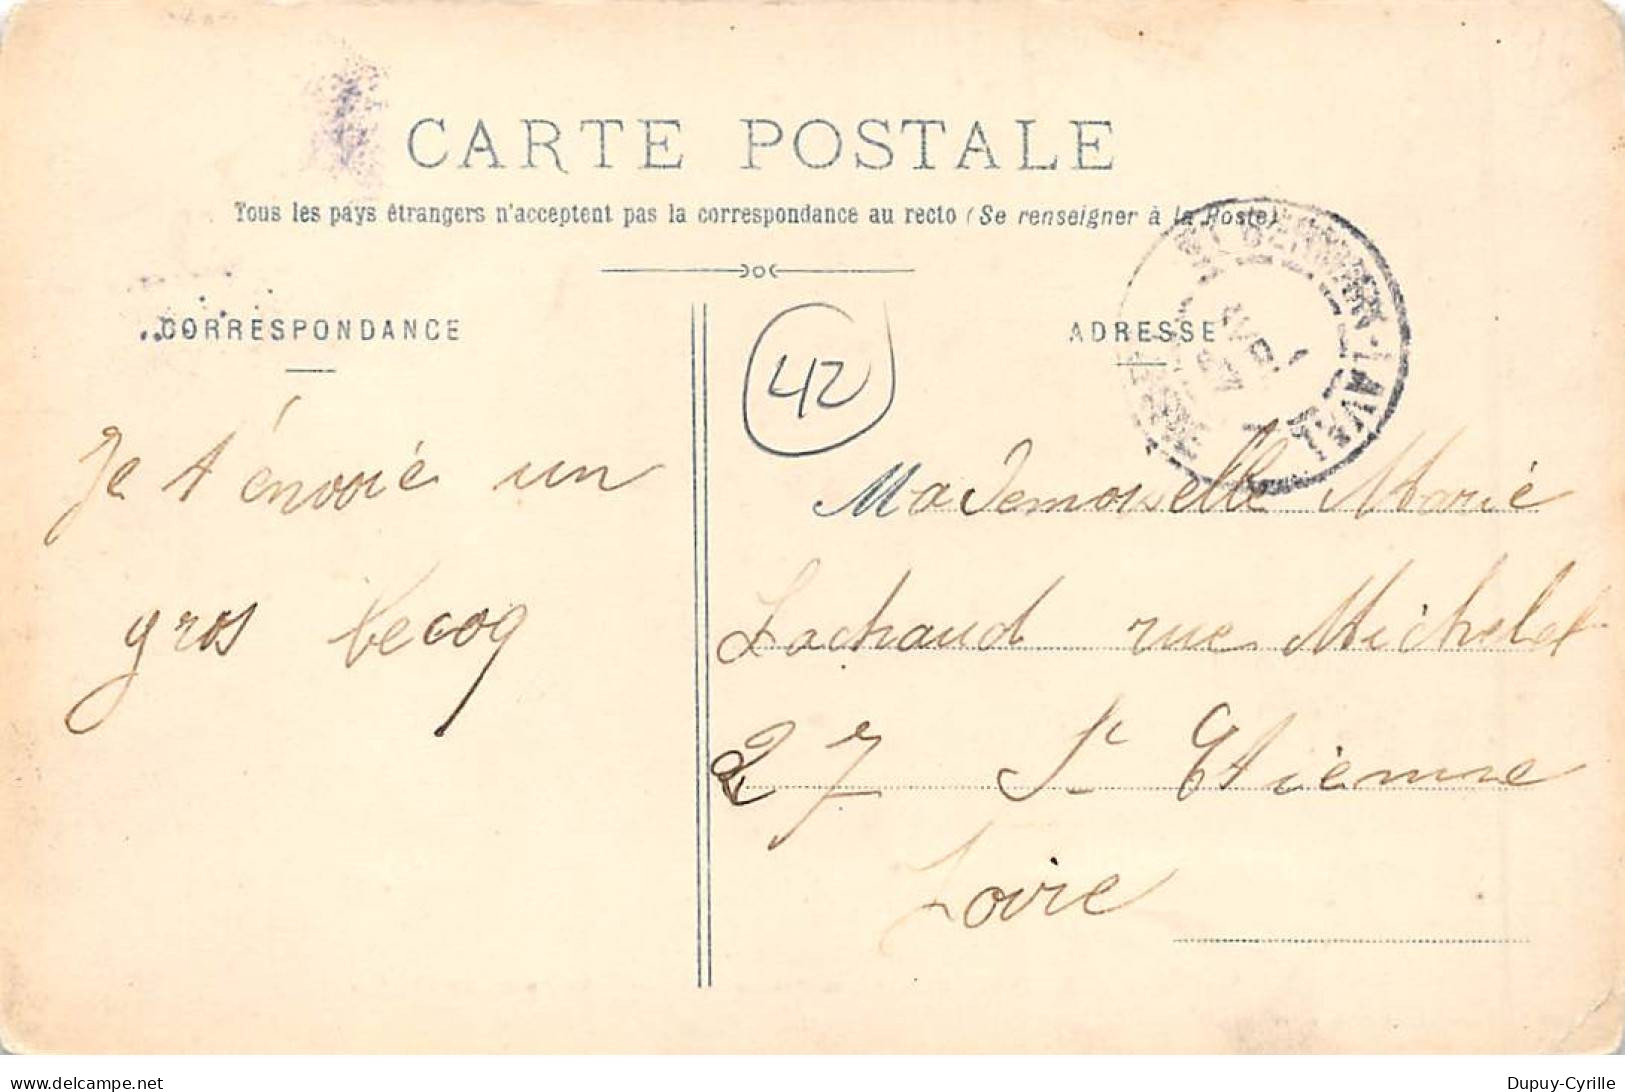 CARTE POSTALE
Tous les pays étrangers n'acceptent pas la correspondance au recto (Se renseigner à la Poste)
CORRESPONDANCE
ADRESSE
42
ST GERMAIN-LAVAL
Je t'énvoié un
gros becoq
Mademoiselle Marié
Lachaud rue Michelet
27 St Etiènne
Loire
www.delcampe.net
Dupuy-Cyrille